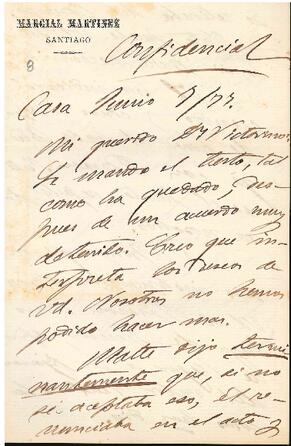 MARCIAL MARTINEZ
SANTIAGO
8
Confidencial
Casa Junio 7/77.
Mi querido Dn Victorino:
Le mando el texto, tal
como ha quedado, des-
pues de un acuerdo muy
detenido. Creo que in-
terpreta los deseos de
Vd. Nosotros no hemos
podido hacer mas.
Matte dijo termi
nantemente que, si no
se aceptaba eso, el re-
nunciaba en el acto y